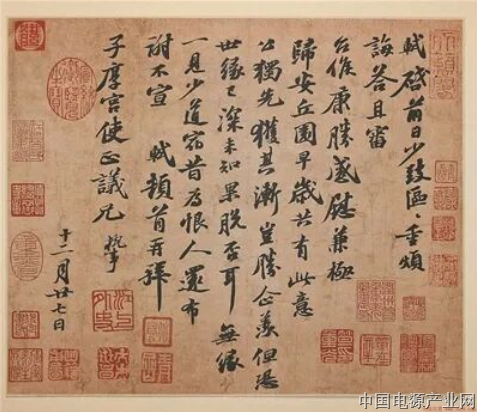 軾啓前日少致區〻重煩
誨答且審
台候康勝感慰兼極
歸安丘園早歲共有此意
公獨先獲其漸豈勝企羨但恐
世緣已深未知果脫否耳無緣
一見少道宿昔為恨人還布
謝不宣 軾頓首再拜
子厚宮使正議兄 執事
十二月廿七日
中国电源产业网